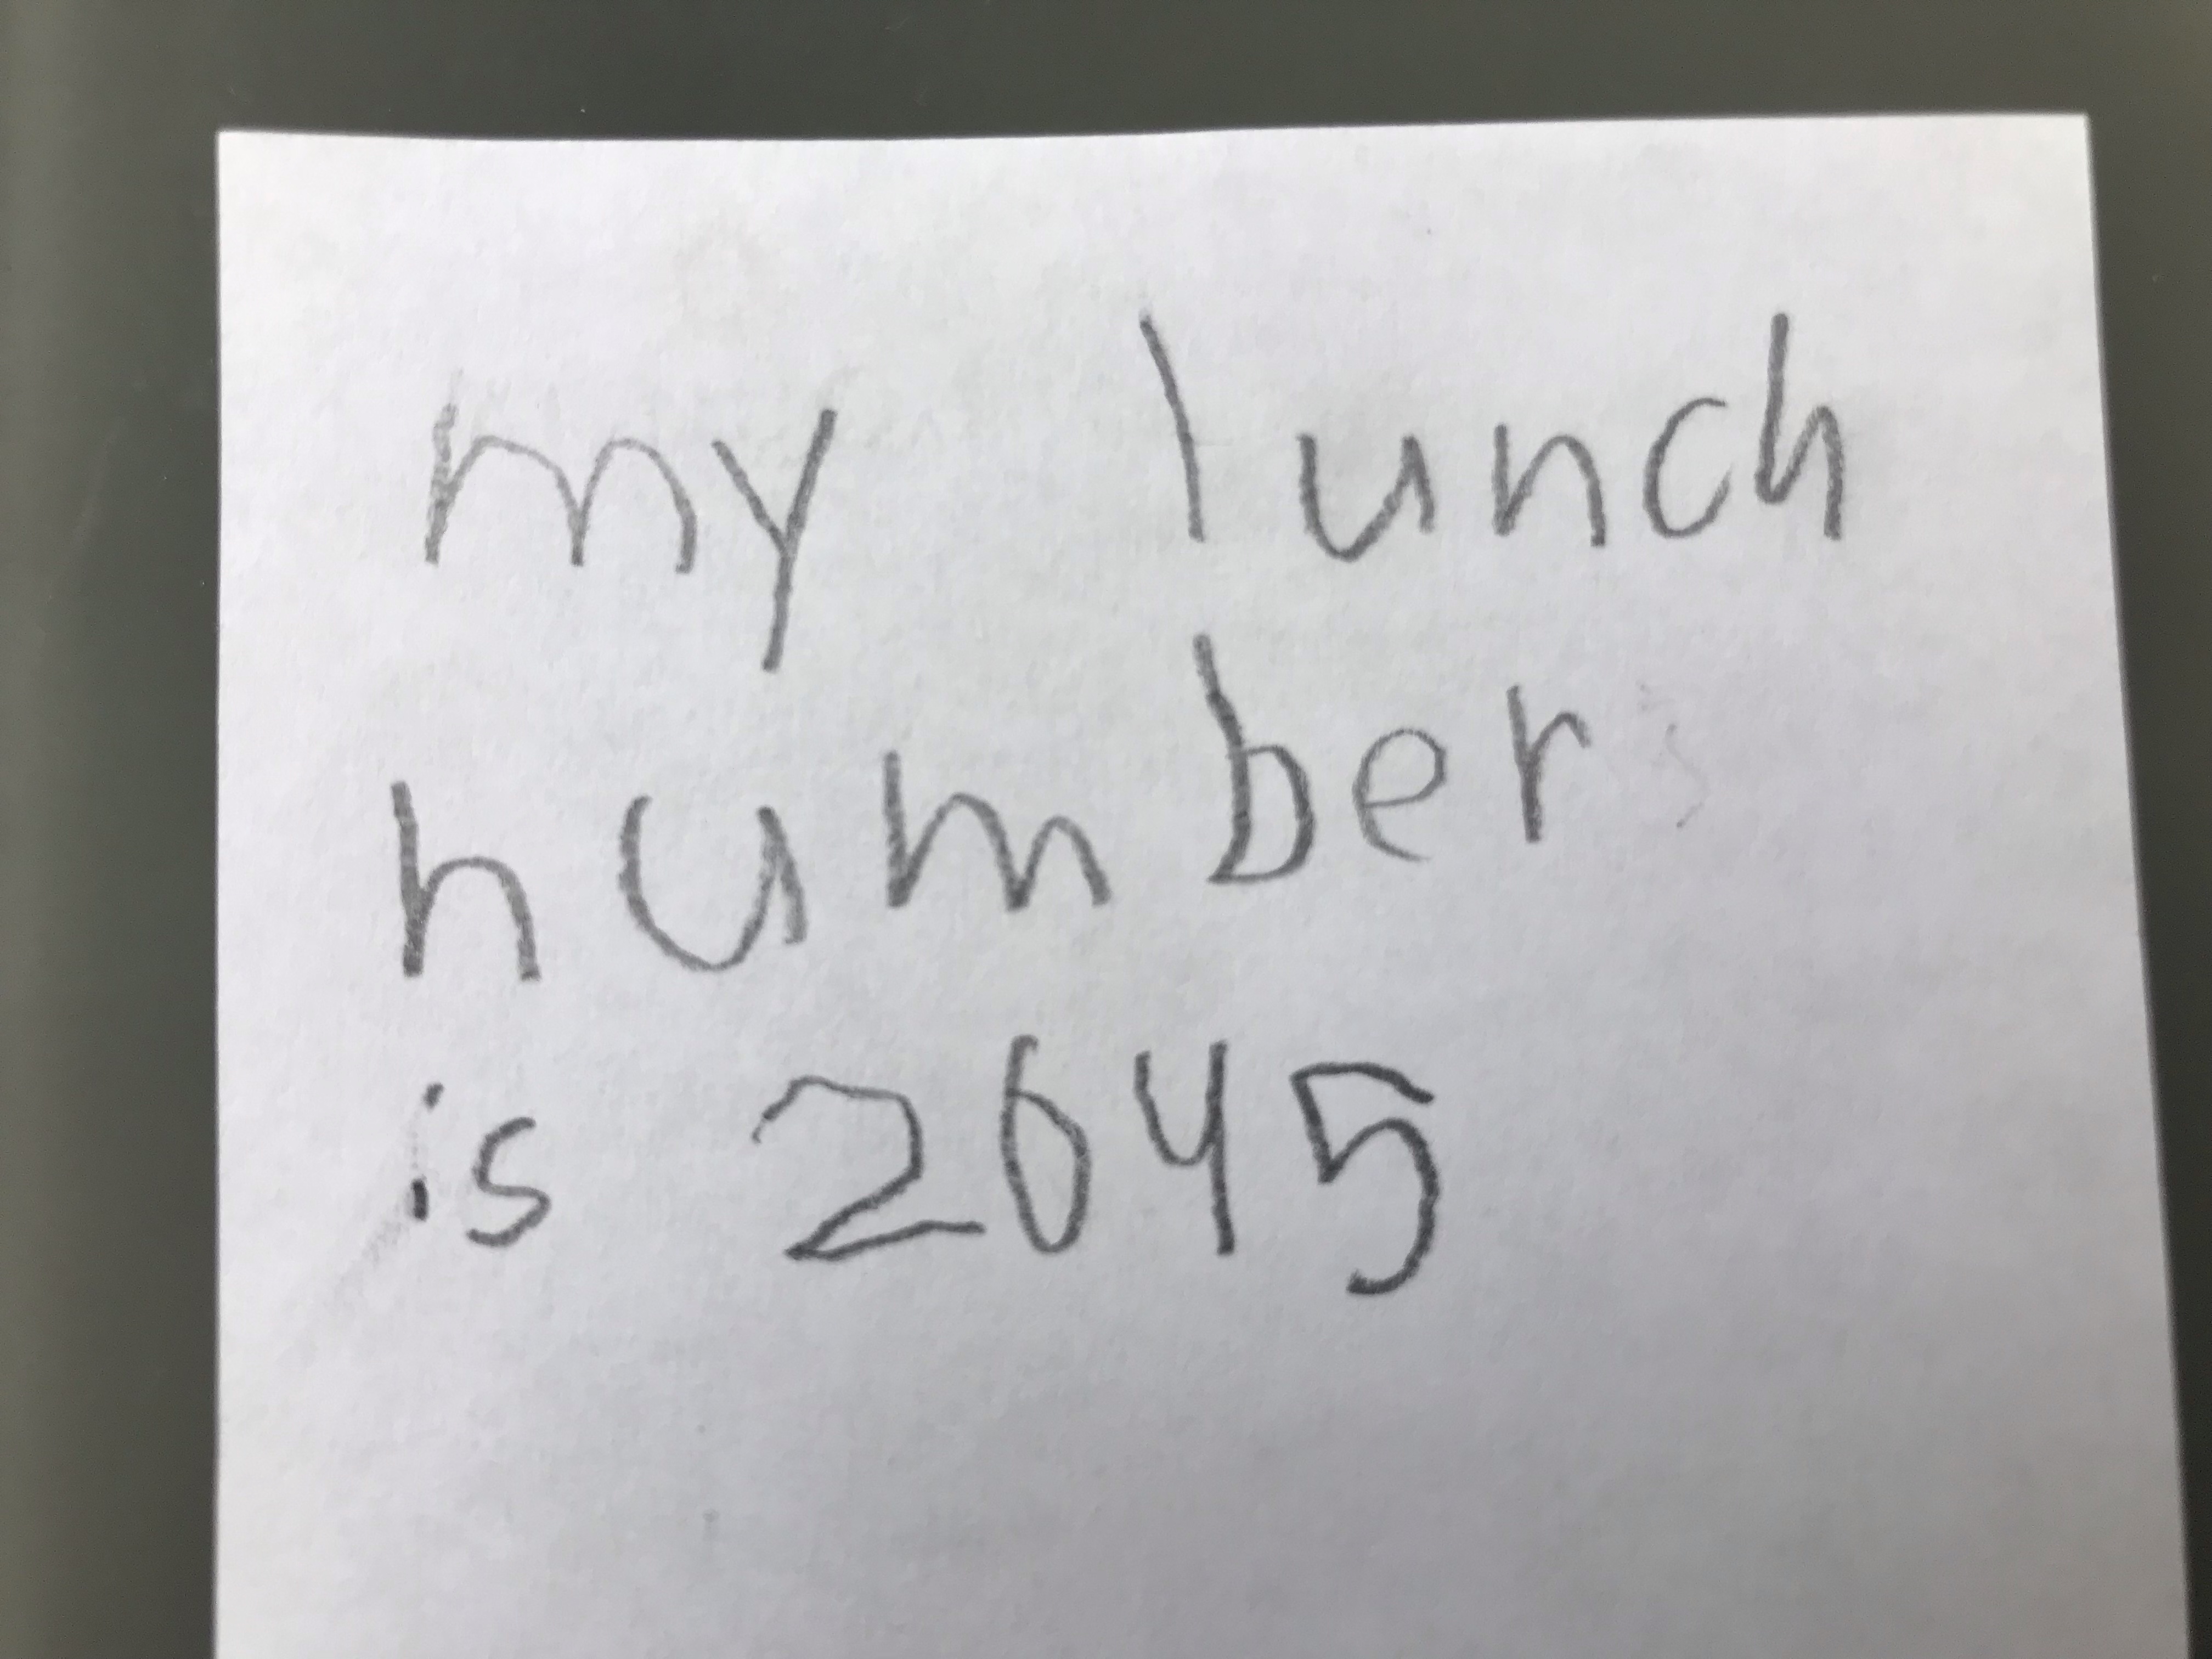 my lunch
number
is 2645